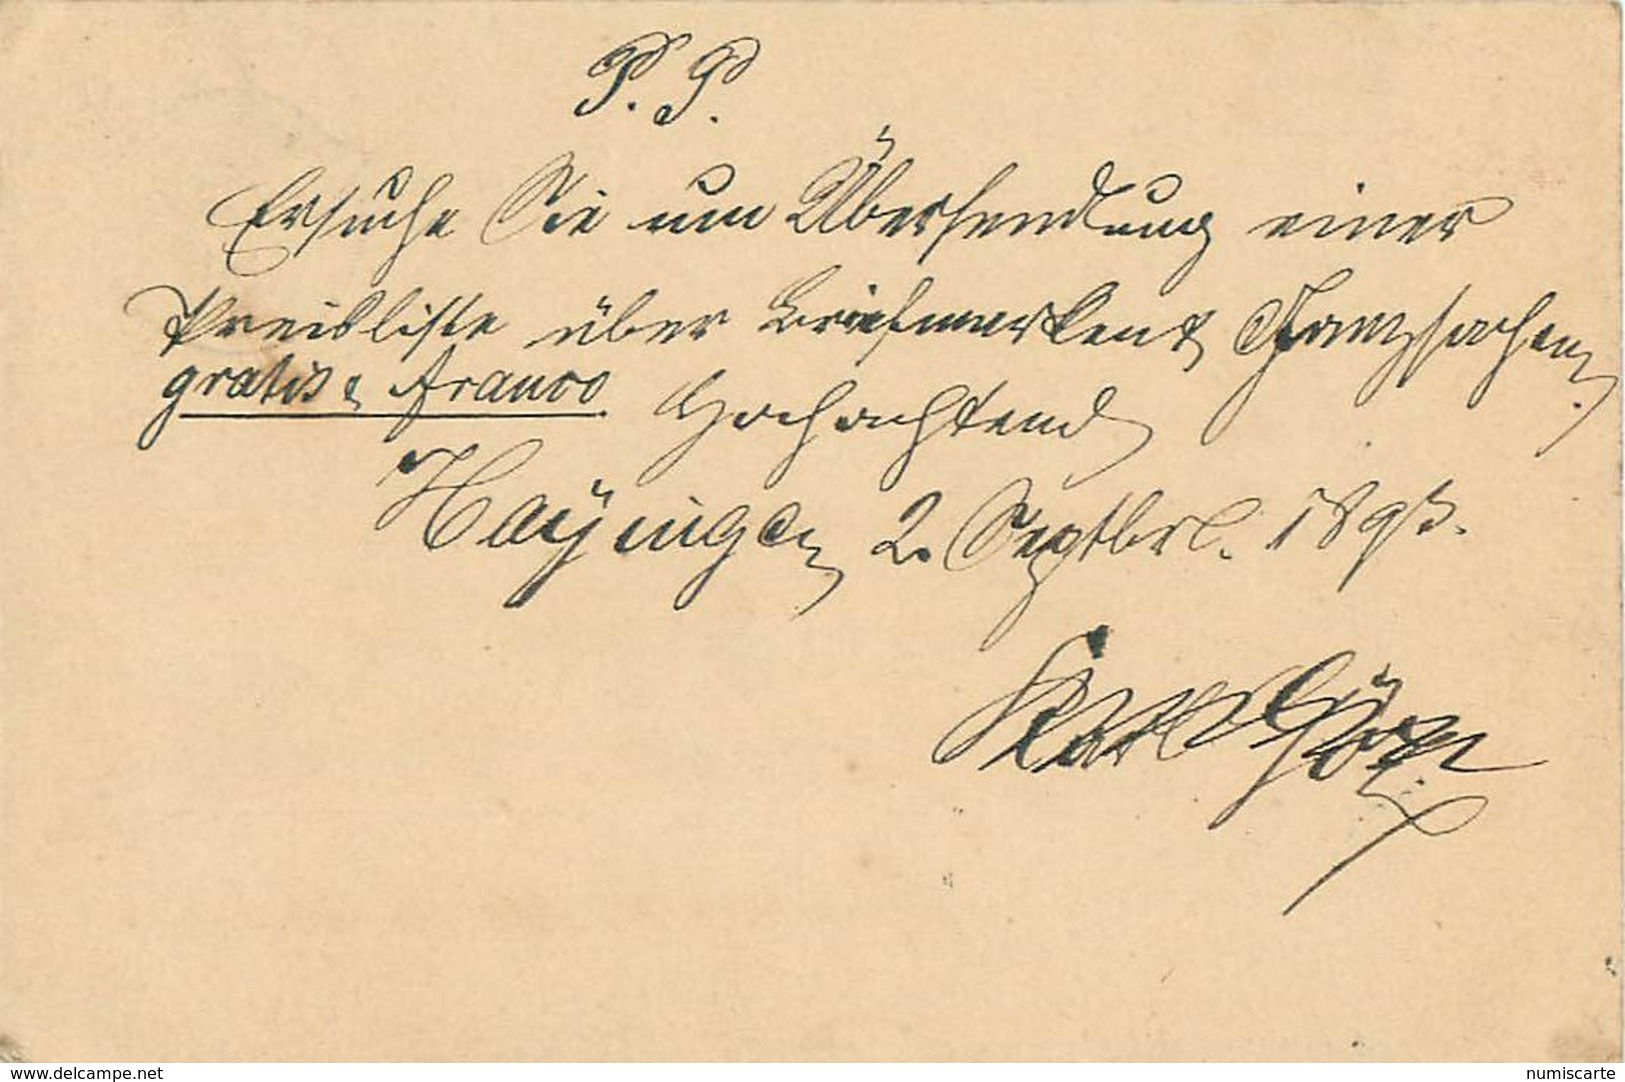 P. P.
Ersuche Sie um Übersendung einer
Preisliste über Briefmarken & Ganzsachen
gratis & franco. Hochachtend
Hayingen 2. Septbr. 1893.
Karl Götz
www.delcampe.net
numiscarte